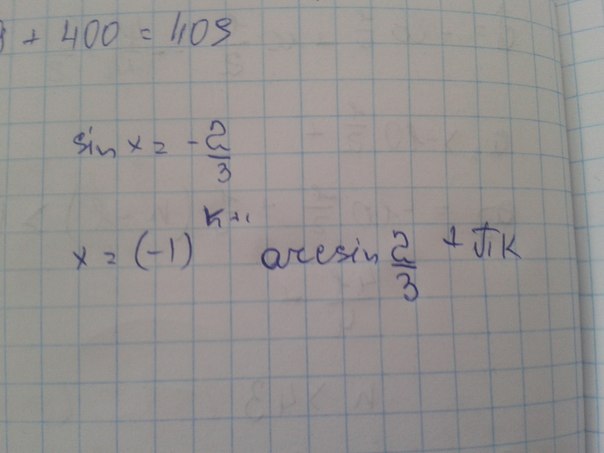 9 + 400 = 409
sin x = - 2/3
x = (-1)^{k+1} arcsin 2/3 + πk